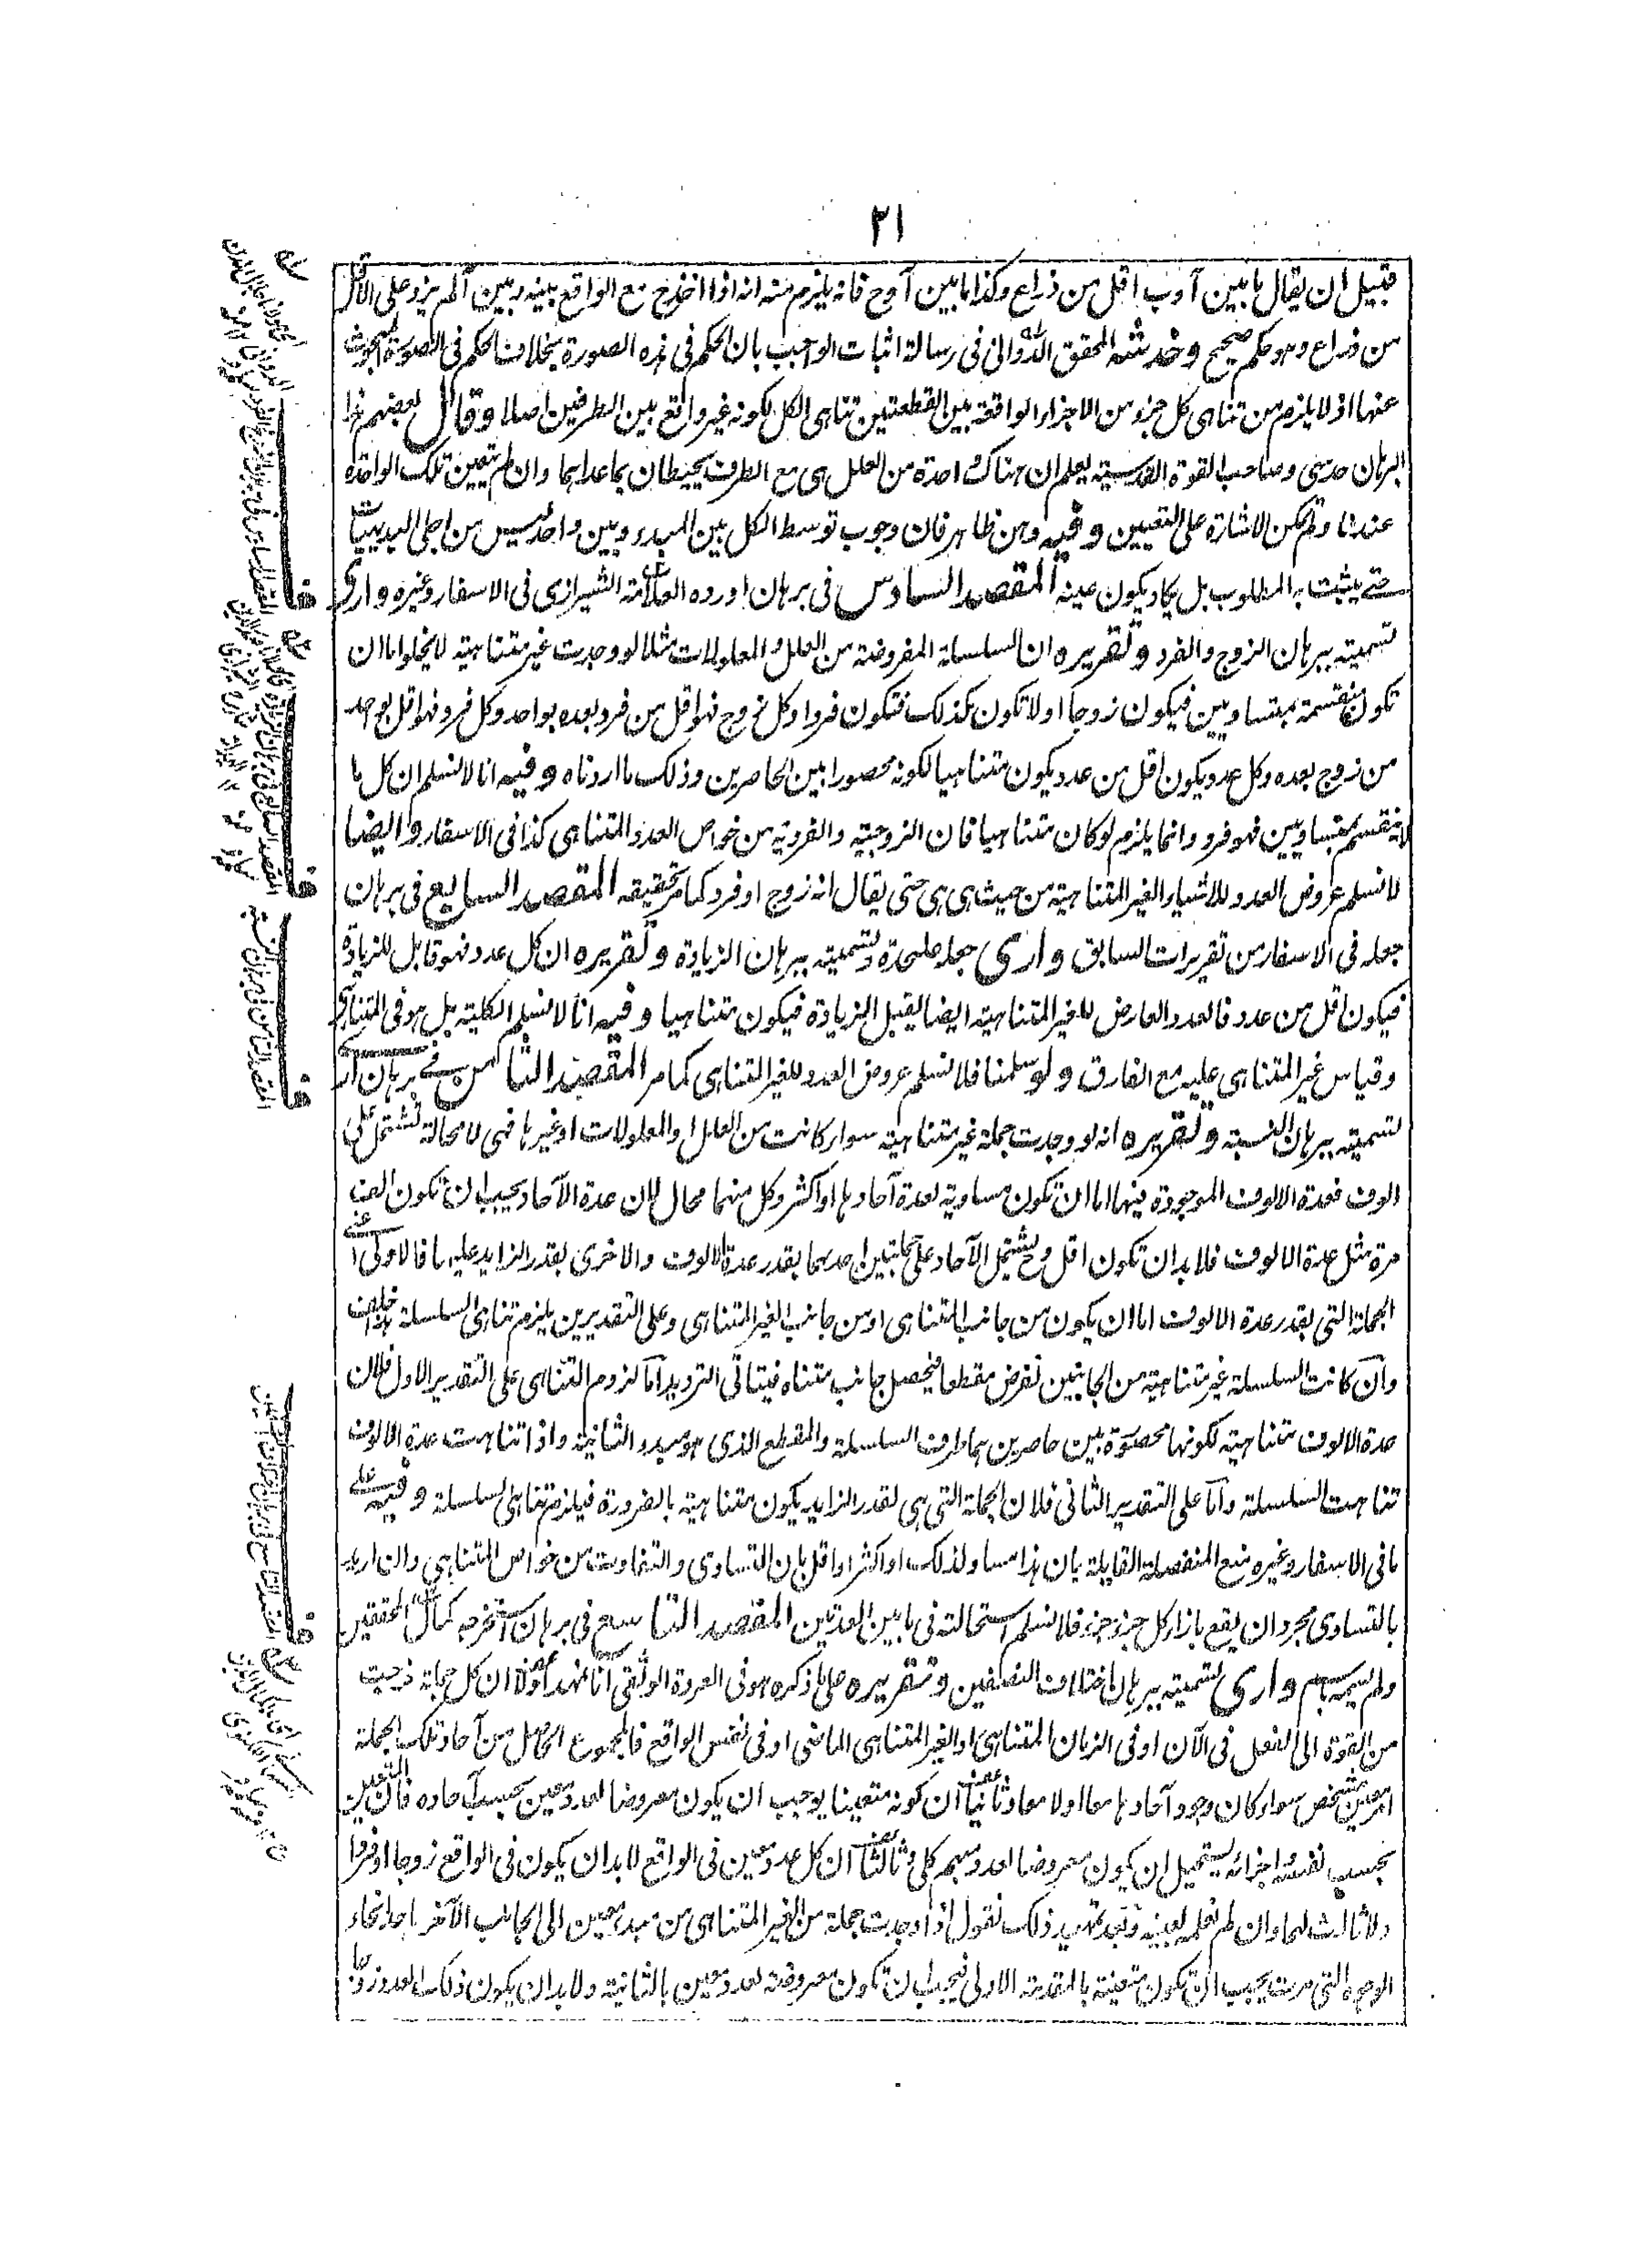 ٢١
قبيل ان يقال ما بين آ وب اقل من ذراع وكذا ما بين آ وج فانه يلزم منه انه اذا اخذ ج مع الواقع بينه وبين آ لم يزد على الاقل
من ذراع وهو حكم صحيح وخدشه المحقق الدوانى فى رسالة اثبات الواجب بان الحكم فى هذه الصورة بخلاف الحكم فى الصورة المبحوث
عنها اذ لا يلزم من تناهى كل جزء من الاجزاء الواقعة بين القطعتين تناهى الكل لكونه غير واقع بين الطرفين اصلا وقال بعضهم هذا
البرهان حدسى وصاحب القوة القدسية يعلم ان هناك واحدة من العلل هى مع الطرف يحيطان بما عداهما وان لم يتعين تلك الواحدة
عندنا ولم يمكن الاشارة على التعيين وفيه وهن ظاهر فان وجوب توسط الكل بين المبدء وبين واحد ليس من اجلى البديهيات
حتے يثبت به المطلوب بل يكاد يكون عينه المقصد السادس فى برهان اورده العلامة الشيرازى فى الاسفار وغيره وارى
تسميته ببرهان الزوج والفرد وتقريره ان السلسلة المفروضة من العلل والمعلولات مثلا لو وجدت غير متناهية لا يخلو اما ان
تكون منقسمة بمتساويين فيكون زوجا اولا تكون كذلك فتكون فردا وكل زوج فهو اقل من فرد بعده بواحد وكل فرد فهو اقل بواحد
من زوج بعده وكل عدد يكون اقل من عدد يكون متناهيا لكونه محصورا بين الحاصرين وذلك ما اردناه وفيه انا لا نسلم ان كل ما
لا ينقسم بمتساويين فهو فرد وانما يلزم لو كان متناهيا فان الزوجية والفردية من خواص العدد المتناهى كذا فى الاسفار وايضا
لا نسلم عروض العدد للاشياء الغير المتناهية من حيث هى هى حتى يقال انه زوج او فرد كما مر تحقيقه المقصد السابع فى برهان
جعله فى الاسفار من تقريرات السابق وارى جعله علىحدة وتسميته ببرهان الزيادة وتقريره ان كل عدد فهو قابل للزيادة
فيكون اقل من عدد فالعدد العارض للغير المتناهية ايضا يقبل الزيادة فيكون متناهيا وفيه انا لا نسلم الكلية بل هو فى المتناهى
وقياس غير المتناهى عليه مع الفارق ولو سلمنا فلا نسلم عروض العدد للغير المتناهى كما مر المقصد الثامن فے برهان ارى
تسميته ببرهان النسبة وتقريره انه لو وجدت جملة غير متناهية سواء كانت من العلل والمعلولات او غيرها فهى لا محالة تشتمل على
الوف فعدة الالوف الموجودة فيها اما ان تكون مساوية لعدة آحادها او اكثر وكل منهما محال لان عدة الآحاد يجب ان تكون الف
مرة مثل عدة الالوف فلا بد ان تكون اقل وح يشتمل الآحاد على جملتين احدهما بقدر عدة الالوف والاخرى بقدر الزايد عليها فالاولى اعنى
الجملة التى بقدر عدة الالوف اما ان يكون من جانب المتناهى او من جانب الغير المتناهى وعلى التقديرين يلزم تناهى السلسلة هذا خلف
وان كانت السلسلة غير متناهية من الجانبين نفرض مقطعا فيحصل جانب متناه فيتاتى الترديد اما لزوم التناهى على التقدير الاول فلان
عدة الالوف متناهية لكونها محصورة بين حاصرين هما طرف السلسلة والمقطع الذى هو مبدء الثانية واذا تناهت عدة الالوف
تناهت السلسلة واما على التقدير الثانى فلان الجملة التى هى بقدر الزايد يكون متناهية بالضرورة فيلزم تناهى السلسلة وفيه على
ما فى الاسفار وغيره منع المنفصلة القايلة بان هذا مساو لذلك او اكثر او اقل بان التساوى والتفاوت من خواص المتناهى وان اريد
بالتساوى مجرد ان يقع بازاء كل جزء جزء فلا نسلم استحالته فى ما بين العدتين المقصد التاسع فى برهان استخرجه كمال المحققين
ولم يسمه باسم وارى تسميته ببرهان اختلاف النصفين وتقريره على ما ذكره هو فى العروة الوثقى انا نمهد اولا ان كل جملة خرجت
من القوة الى الفعل فى الآن او فى الزمان المتناهى او الغير المتناهى الماضى او فى نفس الواقع فالمجموع الحاصل من آحاد تلك الجملة
امر معين متشخص سواء كان وجود آحادها معا اولا معا وثانيا ان كونه متعينا يوجب ان يكون معروضا لعدد معين بحسب آحاده فان المتعين
بحسب نفسه واجزائه يستحيل ان يكون معروضا لعدد مبهم كلى وثالثا ان كل عدد معين فى الواقع لا بد ان يكون فى الواقع زوجا او فردا
ولا ثالث لهما وان لم نعلمه بعينه وبعد تمهيد ذلك نقول اذا وجدت جملة من الغير المتناهى من مبدء معين الى الجانب الآخر باحد انحاء
الوجوه التى مرت يجب ان تكون متعينة بالمقدمة الاولى فيجب ان تكون معروضة لعدد معين بالثانية ولا بد ان يكون ذلك العدد زوجا